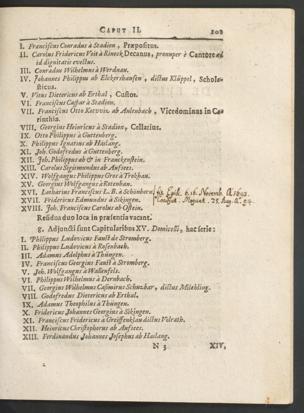 CAPUT II.
I. Franciscus Conradus à Stadion, Præpositus.
II. Carolus Fridericus Voit à Rineck Decanus, pronuper è Cantore ad
id dignitatis evectus.
III. Conradus Wilhelmus à Werdnau.
IV. Johannes Philippus ab Elckershausen, dictus Klüppel, Schola-
sticus.
V. Vitus Dietericus ab Erthal, Custos.
VI. Franciscus Caspar à Stadion.
VII. Franciscus Otto ab Aulenbach, Vicedominus in Ca-
rinthia.
VIII. Georgius Heinricus à Stadion, Cellarius.
IX. Otto Philippus à Guttenberg.
X. Philippus Ignatius ab Haslang.
XI. Joh. Godofredus à Guttenberg.
XII. Joh. Philippus ab & in Franckenstein.
XIII. Carolus Sigismundus ab Aufsees.
XIV. Wolfgangus Philippus Gros à Trokhau.
XV. Georgius Wolfgangus à Rotenhan.
XVI. Lotharius Franciscus L. B. à Schönborn;
XVII. Fridericus Edmundus à Sikingen.
XIIX. Joh. Franciscus Carolus ab Ostein.
Residua duo loca in præsentia vacant.
g. Adjuncti sunt Capitularibus XV. Domicelli, hac serie:
I. Philippus Ludovicus Faust de Stromberg.
II. Philippus Ludovicus à Rosenbach.
III. Adamus Adolphus à Thüngen.
IV. Franciscus Georgius Faust à Stromberg.
V. Joh. Wolfgangus à Wallenfels.
VI. Philippus Wilhelmus à Dernbach.
VII. Georgius Wilhelmus Casimirus Schuzbar, dictus Milchling.
VIII. Godofredus Dietericus ab Erthal.
IX. Adamus Theophilus à Thüngen.
X. Fridericus Johannes Georgius à Sikingen.
XI. Franciscus Fridericus à Greiffenklau dictus Volrath.
XII. Heinricus Christophorus ab Aufsees.
XIII. Ferdinandus Johannes Josephus ab Haslang.
N 3 XIV.